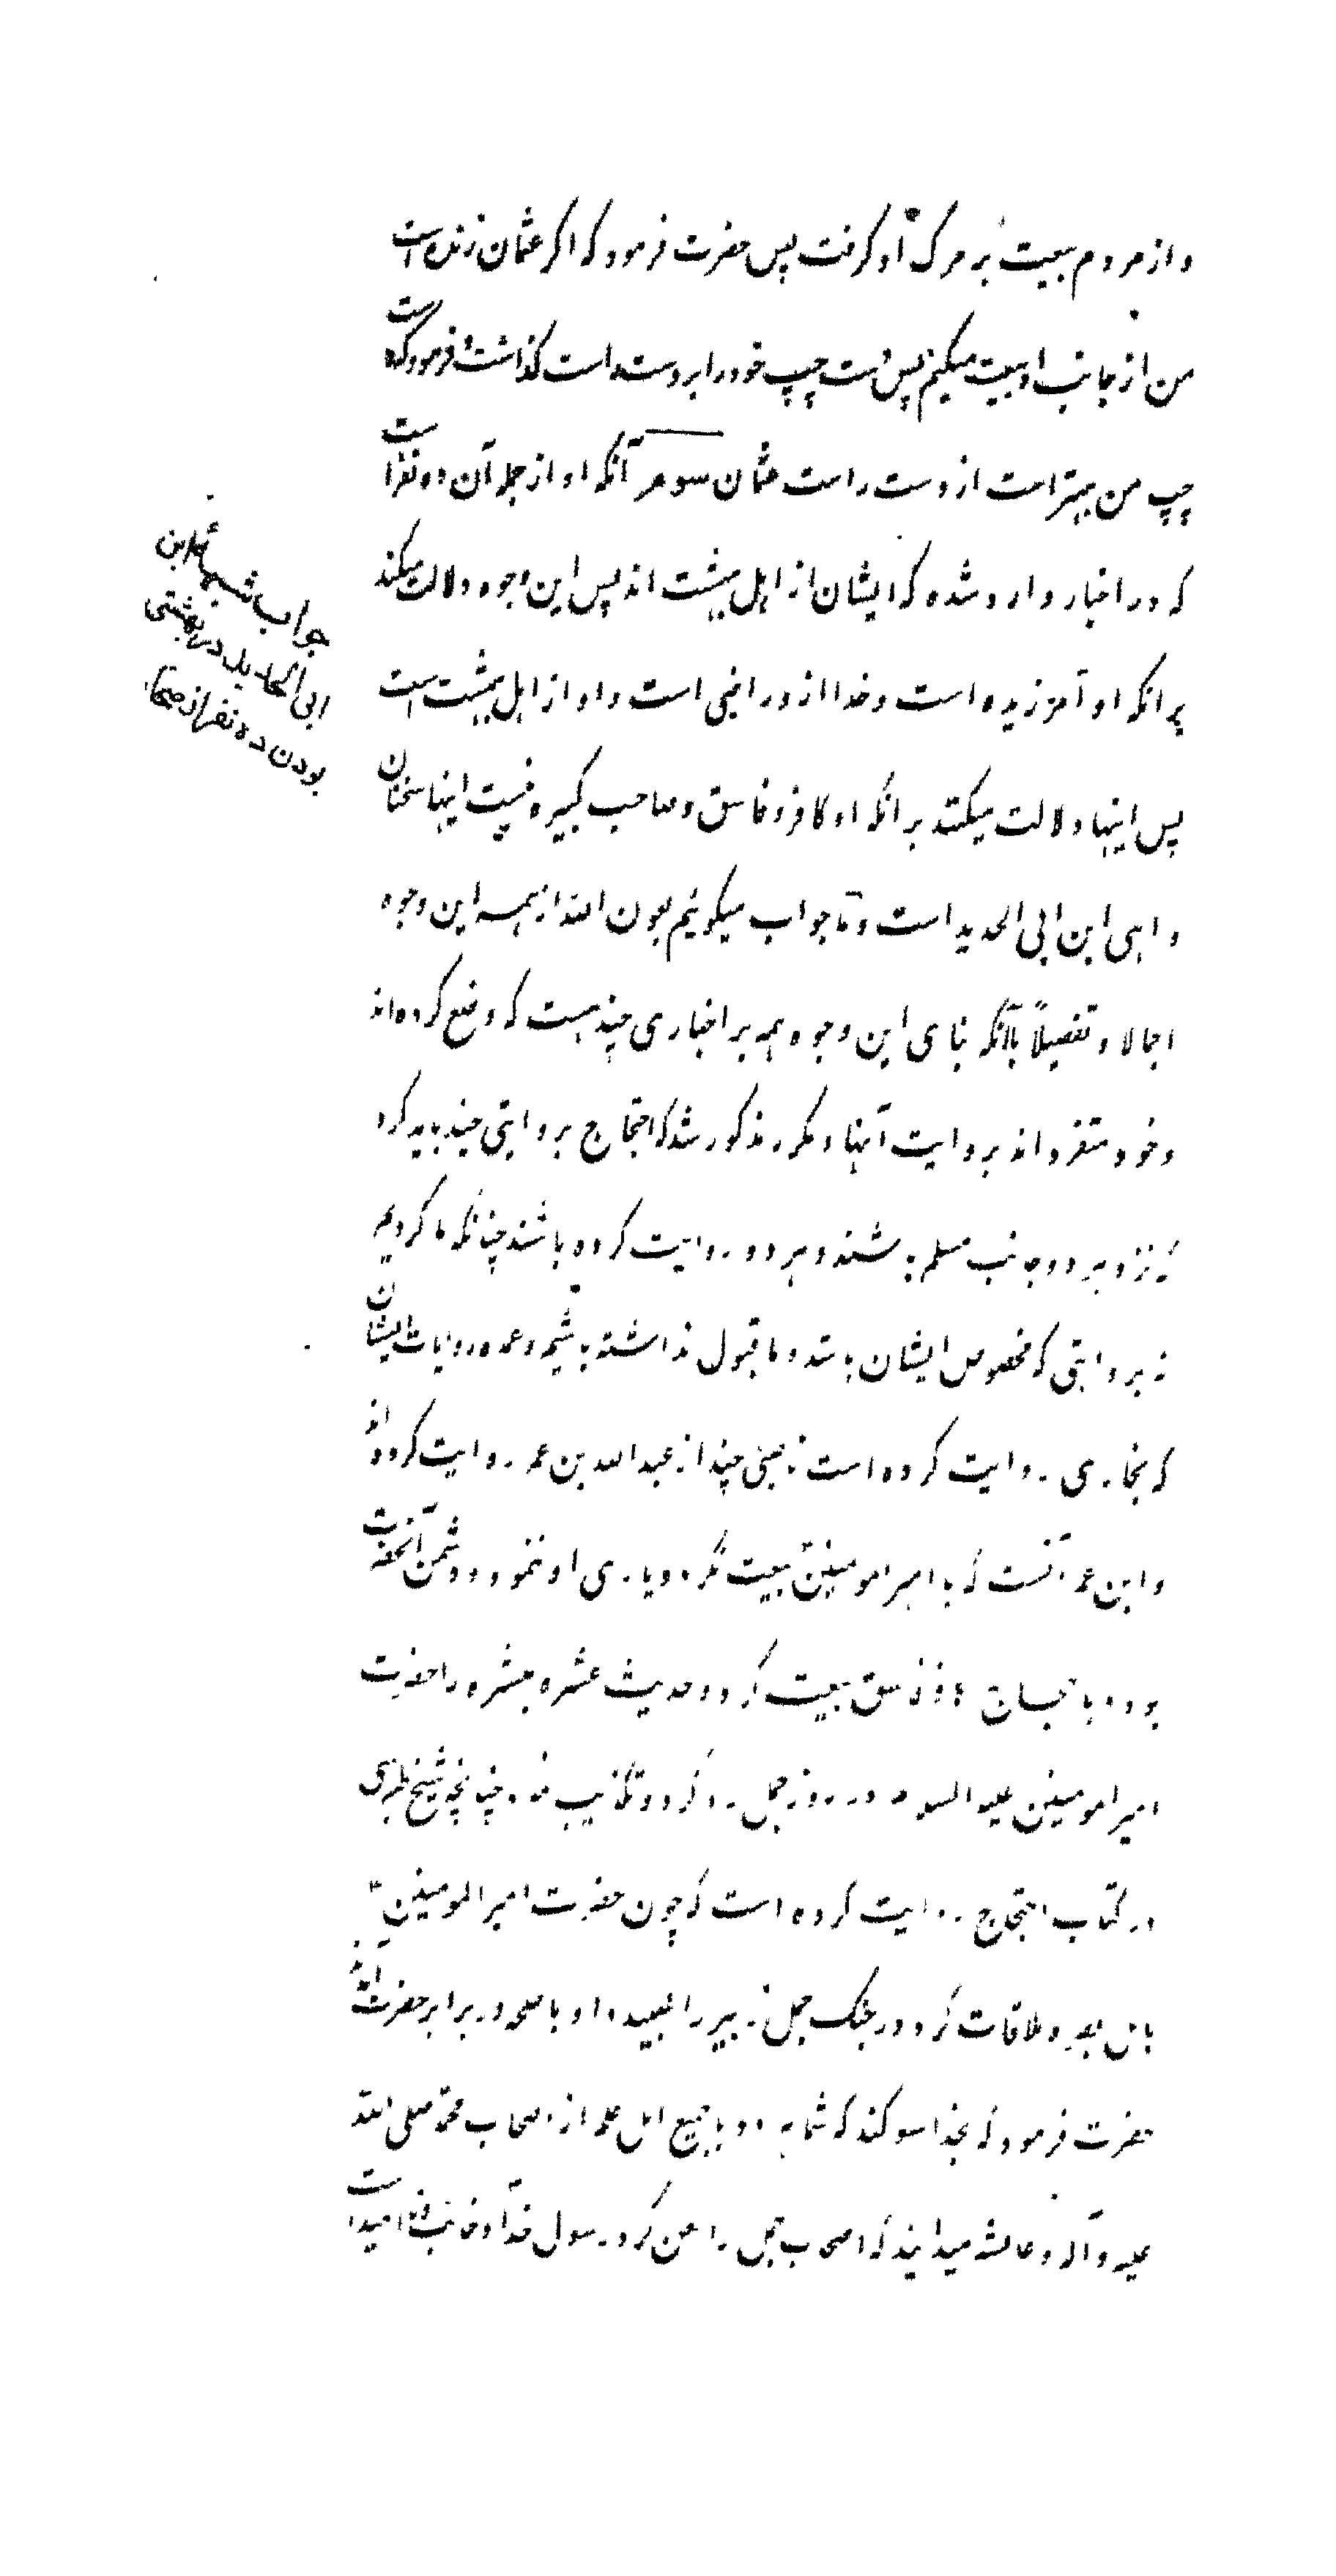 و از مردم بیعت بر مرگ او کرفت پس حضرت فرمود که اکر عثمان زنده است
من از جانب او بیعت میکنم پس دست چپ خود را بر دست راست کذاشت و فرمود که دست
چپ من بهتر است از دست راست عثمان سوم آنکه او از جمله آن ده نفر است
که در اخبار وارد شده که ایشان از اهل بهشت اند پس این وجوه دلالت میکند
بر انکه او آمرزیده است و خدا از و راضی است و او از اهل بهشت است
پس اینها دلالت میکنند بر انکه او کافر و فاسق و صاحب کبیره نیست اینها سخنان
واهی ابن ابی الحدید است و ما جواب میکوئیم بعون الله از همه این وجوه
اجمالا و تفصیلاً بآنکه بنای این وجوه همه بر اخباری چند است که وضع کرده اند
و خود متفرد اند بروایت آنها و مکرر مذکور شد که احتجاج بروایتی چند باید کرد
که نزد هر دو جانب مسلم باشند و هر دو روایت کرده باشند چنانکه ما کردیم
نه بروایتی که مخصوص ایشان باشد و ما قبول نداشته باشیم و عمده روایات ایشان
که بخاری روایت کرده است یعنی چند از عبد الله بن عمر روایت کرده اند
و ابن عمر آنست که با امیر المومنین بیعت نکرد و یاری او ننمود و دشمن آنحضرت
بود و با حجاج فاسق بیعت کرد و حدیث عشره مبشره را حضرت
امیر المومنین علیه السلام در روز جمل رد کرد و تکذیب نمود چنانچه شیخ طبرسی
در کتاب احتجاج روایت کرده است که چون حضرت امیر المومنین ع
با اهل بصره ملاقات کرد در جنک جمل زبیر را طلبید و او با طلحه در برابر حضرت آمدند
حضرت فرمود که بخدا سوکند که شما هر دو با جمیع اهل علم از اصحاب محمد صلی الله
علیه و آله و عائشه میدانید که اصحاب جمل را لعن کرد رسول خدا و خائب و نا امید است
جواب شبهات ابن
ابی الحدید در بهشتی
بودن ده نفر از صحابه